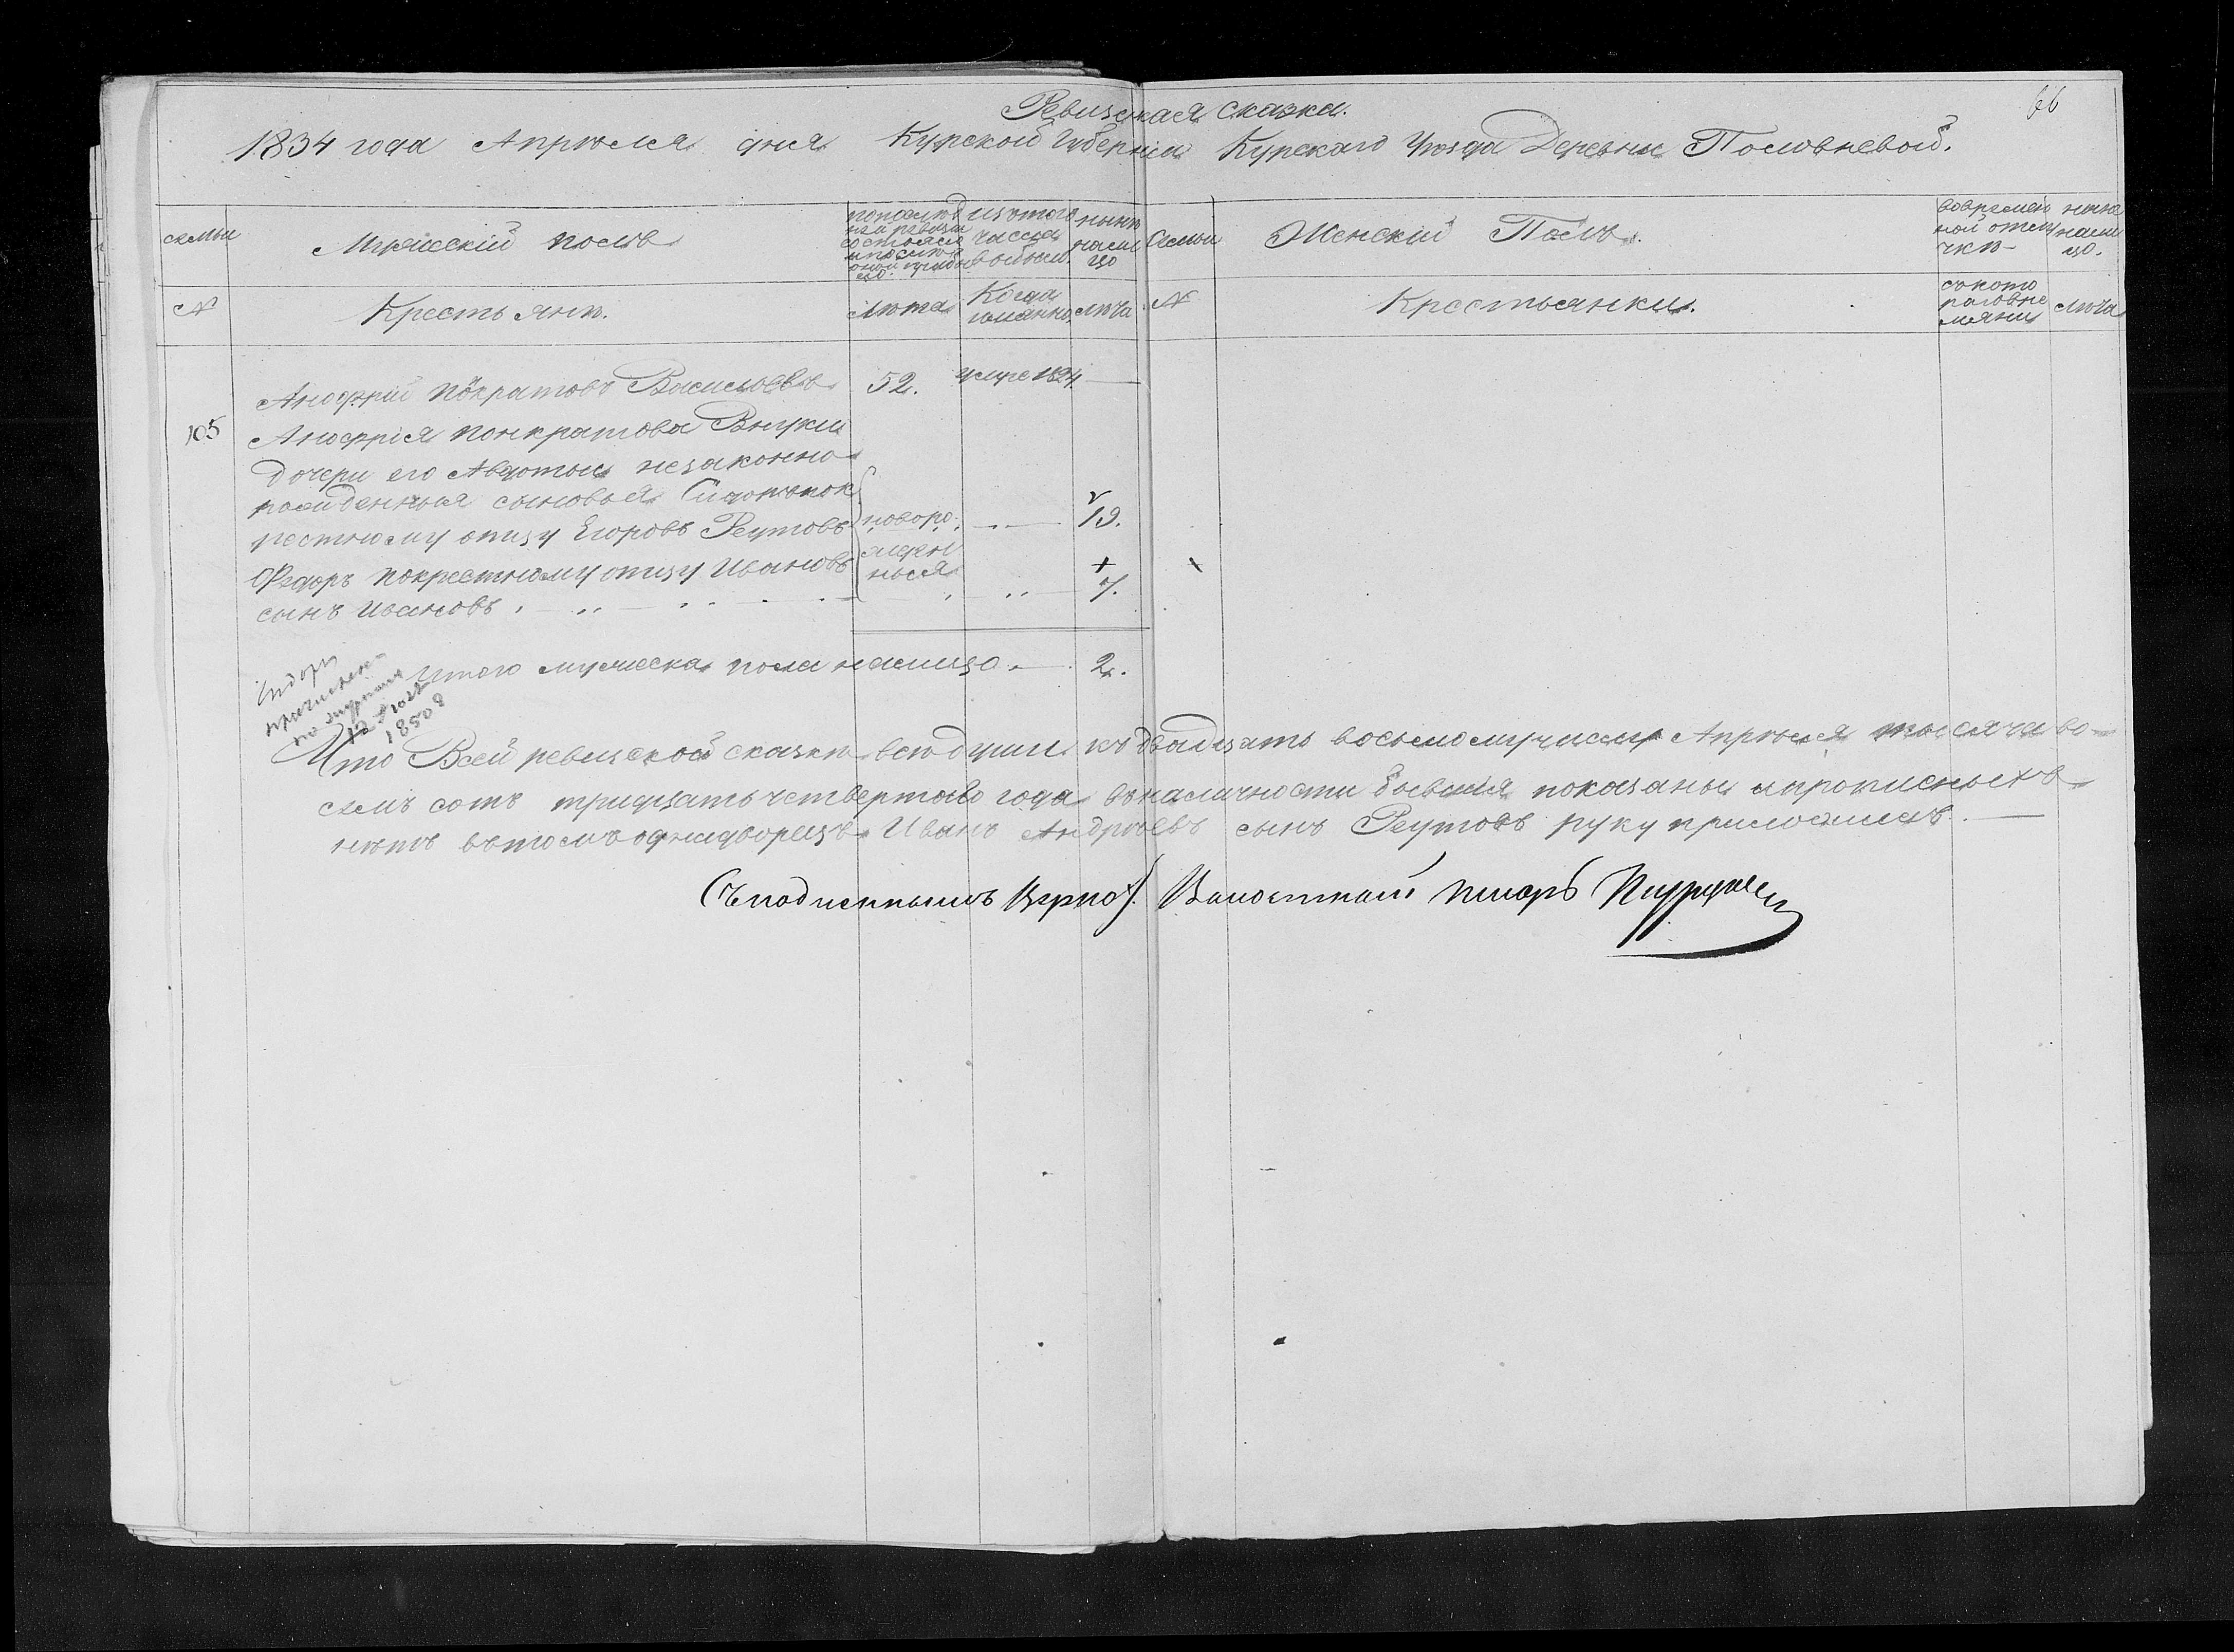 66
Ревизская сказка.
1834 года Апреля дня Курской Губернии Курскаго Уезда Деревни Половневой.
семьи
Мужеский полъ
по последней ревизии состояло и после оной прибыло
изътого числа выбыло
ныне налицо
Семьи
Женский Полъ.
вовременной отлучке
ныне налицо.
№
Крестьяне.
лета
Когда именно
лета
№
Крестьянки.
съкоторого времяни
лета
Анофрий Понкратовъ Васильевъ 52. умре 1824 —
105
Анофрия понкратова Внуки
Дочери его Авдотьи незаконно
рожденныя сыновья Сидоръ пок
рестному отцу Егоровъ Реутовъ новоро 19.
Федоръ покрестному отцу Ивановъ жден ныя +
сынъ Ивановъ 7.
Итого мужеска пола налицо — 2.
1850
Что Всей ревизской сказке все души къ двадцать восьмому числу Апреля тысяча во-
семъ сотъ тридцать четвертого года вналичности бывшия показаны и прописныхъ
нетъ втомъ однодворецъ Иванъ Андреевъ сынъ Реутовъ руку приложилъ. —
Съ подлиннымъ Верно). Волостной писарь